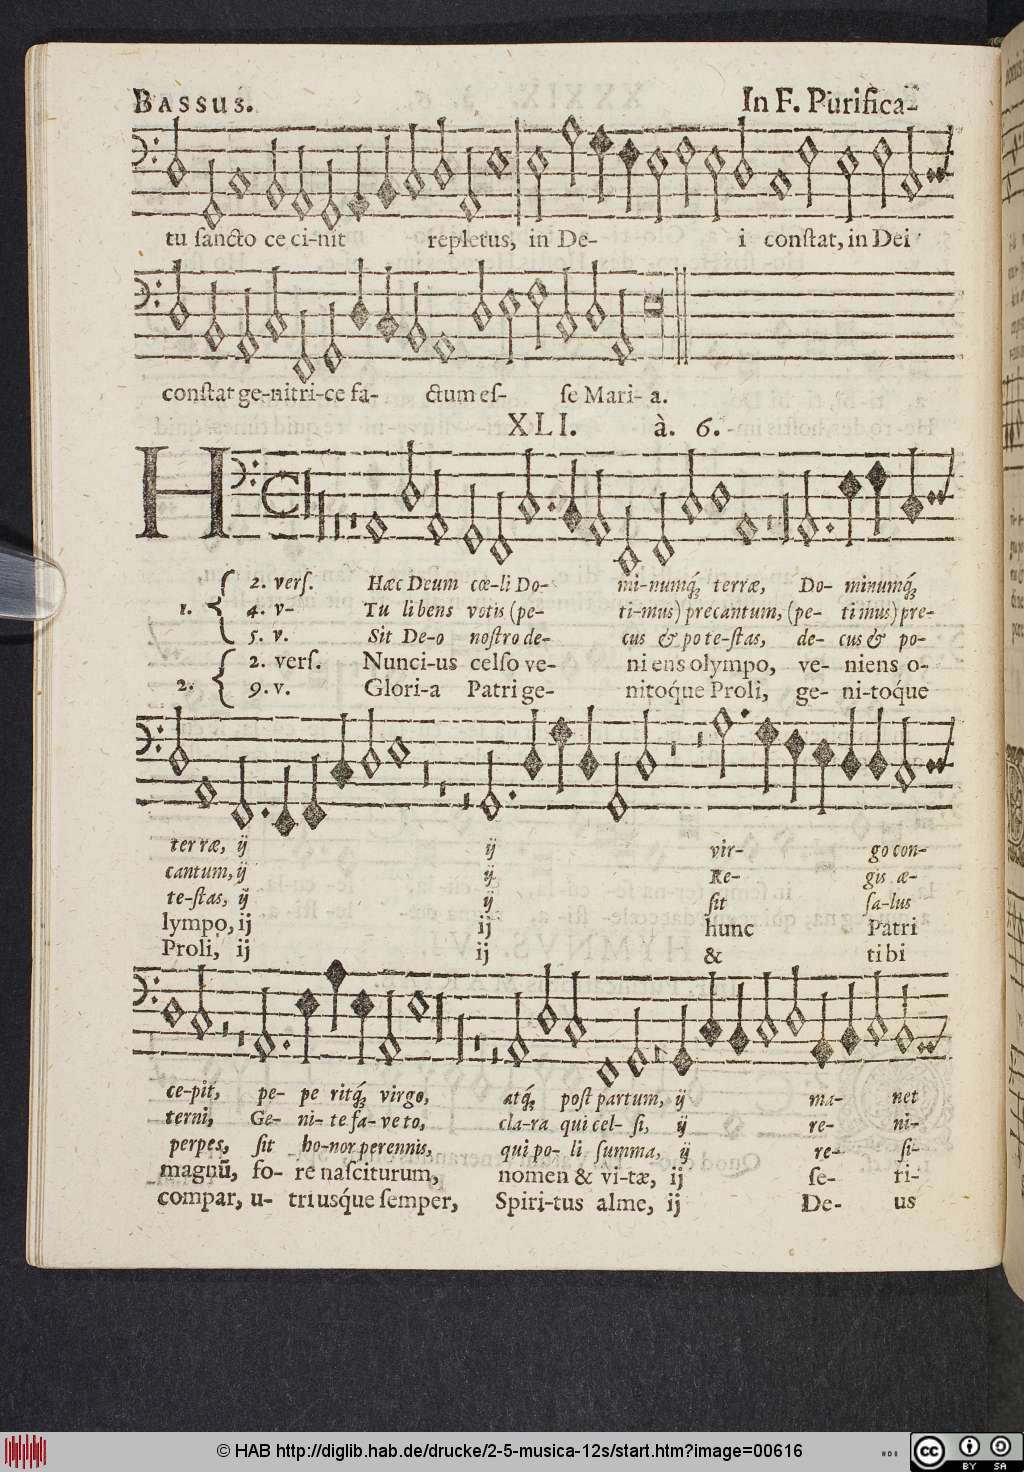 BASSUS. In F. Purifica-
tu ſancto ce ci-nit repletus, in De- i conſtat, in Dei
conſtat ge-nitri-ce fa- ctum eſ- ſe Mari- a.
XLI. à. 6.
H
1. 2. verſ. Hæc Deum cœ-li Do- mi-numq́ʒ terræ, Do- minumq́ʒ
4. v- Tu libens votis (pe- ti-mus) precantum, (pe- timus) pre-
5. v. Sit De-o noſtro de- cus & po te-ſtas, de- cus & po-
2. 2. verſ. Nunci-us celſo ve- ni ens olympo, ve- niens o-
9. v. Glori-a Patri ge- nitoq́ue Proli, ge- ni-toq́ue
terræ, ij ij vir- go con-
cantum, ij ij Re- gis æ-
te-ſtas, ij ij ſit ſa-lus
lympo, ij ij hunc Patri
Proli, ij ij & tibi
ce-pit, pe- pe ritq́ʒ virgo, atq́ʒ poſt partum, ij ma- net
terni, Ge- ni- te fa-ve to, cla-ra qui cel- ſi, ij re- ni-
perpes, ſit ho-nor perennis, qui po- li ſumma, ij re- ſi-
magnũ, fo- re naſciturum, nomen & vi-tæ, ij ſe- ri-
compar, u- triusque ſemper, Spiri-tus alme, ij De- us
© HAB http://diglib.hab.de/drucke/2-5-musica-12s/start.htm?image=00616
cc BY SA